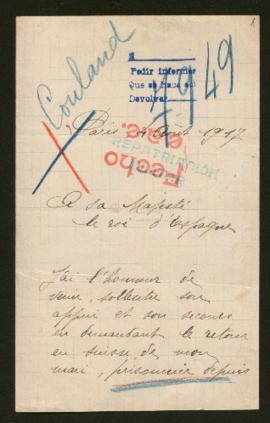 1
Couland
4949
Pedir informes
Que se haga así
Devolver
Paris Août 1917
REPATRIACIÓN
Fecho
A sa Majesté
le roi d'Espagne
J'ai l'honneur de
venir solliciter son
appui et son secours
en demandant le retour
en Suisse de mon
mari, prisonnier depuis